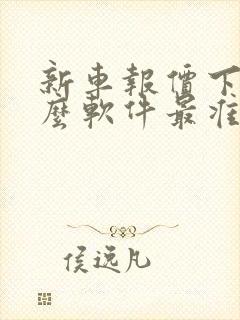 新車報價下
麼軟件最准
侯逸凡